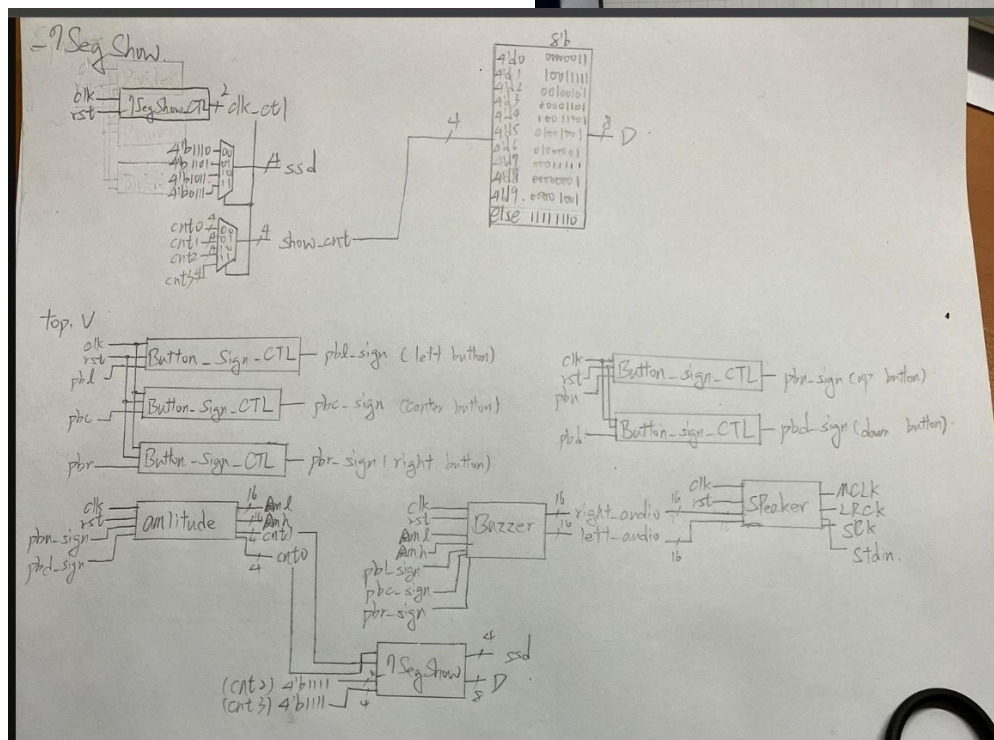 -7Seg Show.
clk
rst
7SegShow_CTL
2
clk_ctl
4'b1110
4'b1101
4'b1011
4'b0111
00
01
10
11
4
ssd
cnt0
cnt1
cnt2
cnt3
4
4
4
4
00
01
10
11
4
show_cnt
4
8'b
4'd0 00000011
4'd1 10011111
4'd2
4'd3 00001101
4'd4 10011001
4'd5
4'd6
4'd7 00011111
4'd8 00000001
4'd9. 00001001
else 11111110
8
D
top.V
clk
rst
pbl
Button_Sign_CTL
pbl_sign (left button)
pbc
Button_Sign_CTL
pbc_sign (center button)
pbr
Button_Sign_CTL
pbr_sign (right button)
clk
rst
pbu
Button_sign_CTL
pbu_sign (up button)
pbd
Button_sign_CTL
pbd_sign (down button).
clk
rst
pbu_sign
pbd_sign
amlitude
16
Aml
16
Amh
4
cnt1
4
cnt0
clk
rst
Aml
Amh
pbl_sign
pbc_sign
pbr_sign
Buzzer
16
right_audio
16
left_audio
clk
rst
16
16
Speaker
MCLK
LRCK
SCK
Stdin.
(cnt2) 4'b1111
(cnt3) 4'b1111
4
4
7SegShow
4
ssd
8
D